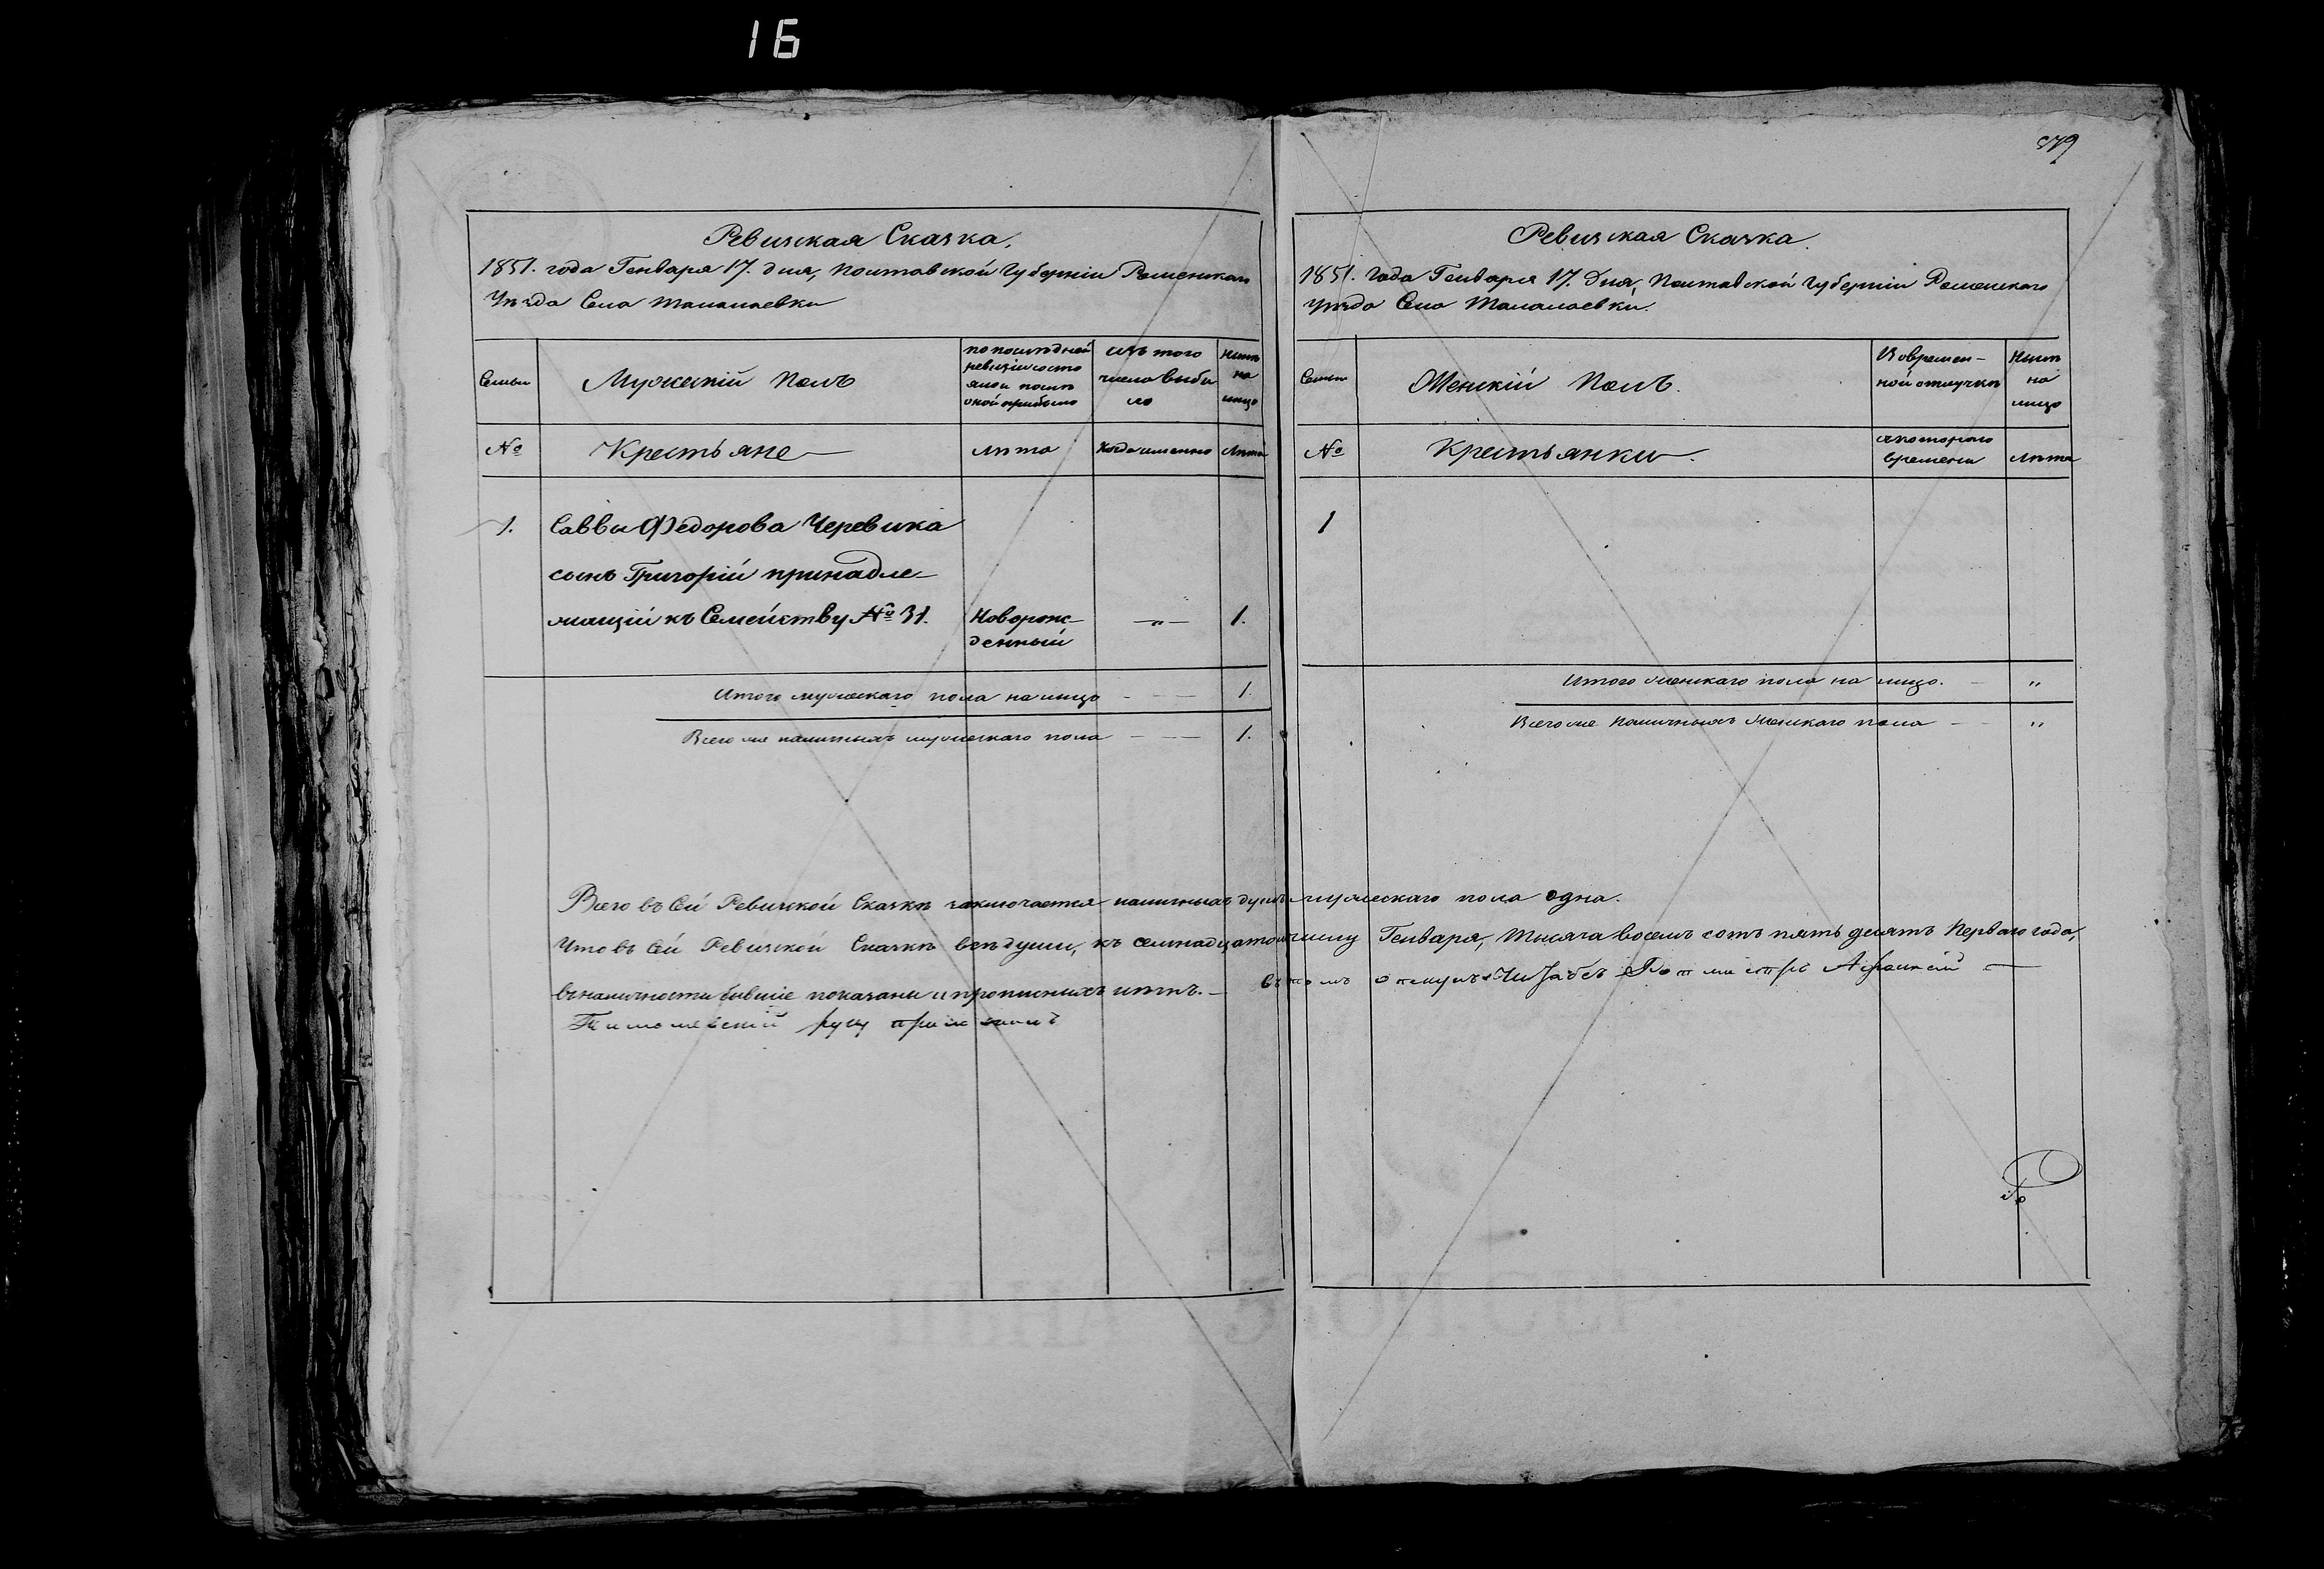 16
Ревизская Сказка.
1851. года Генваря 17. дня, Полтавской Губерніи Роменскаго
Уѣзда Села Талалаевки
Семьи
Мужескій Полъ
по послѣдней
ревизіи состо
яло и послѣ
оной прибыло
изъ того
числа выбы
ло
Нынѣ
на
лицо
№
Крестьяне
Лѣта
Когда именно
Лѣта
1.
Саввы Федорова Черевика
сынъ Григорій принадле-
жащій къ Семейству № 31.
Новорож-
денный
—„—
1.
Итого мужескаго пола на лицо - - — 1.
Всего же наличныхъ мужескаго пола - - — 1.
Ревизская Сказка.
1851. Года Генваря 17. Дня, Полтавской Губерніи Роменскаго
уѣзда Села Талалаевки.
Семьи
Женскій Полъ.
Въ времен-
ной отлучкѣ
Нынѣ
на
лицо
№
Крестьянки.
съ котораго
времени
Лѣта
1
Итого женскаго пола на лицо. - „
Всего же Наличныхъ Женскаго пола - „
Всего въ Сей Ревизской Сказкѣ заключается наличныхъ душъ мужескаго пола одна.
Что въ Сей Ревизской Сказкѣ всѣ души, къ семнадцатому числу Генваря, тысяча восемъ сотъ пять десятъ Перваго года,
въ наличности бывшіе показаны и прописныхъ нѣтъ. — въ томъ опекунъ Ротмистръ
руку приложилъ